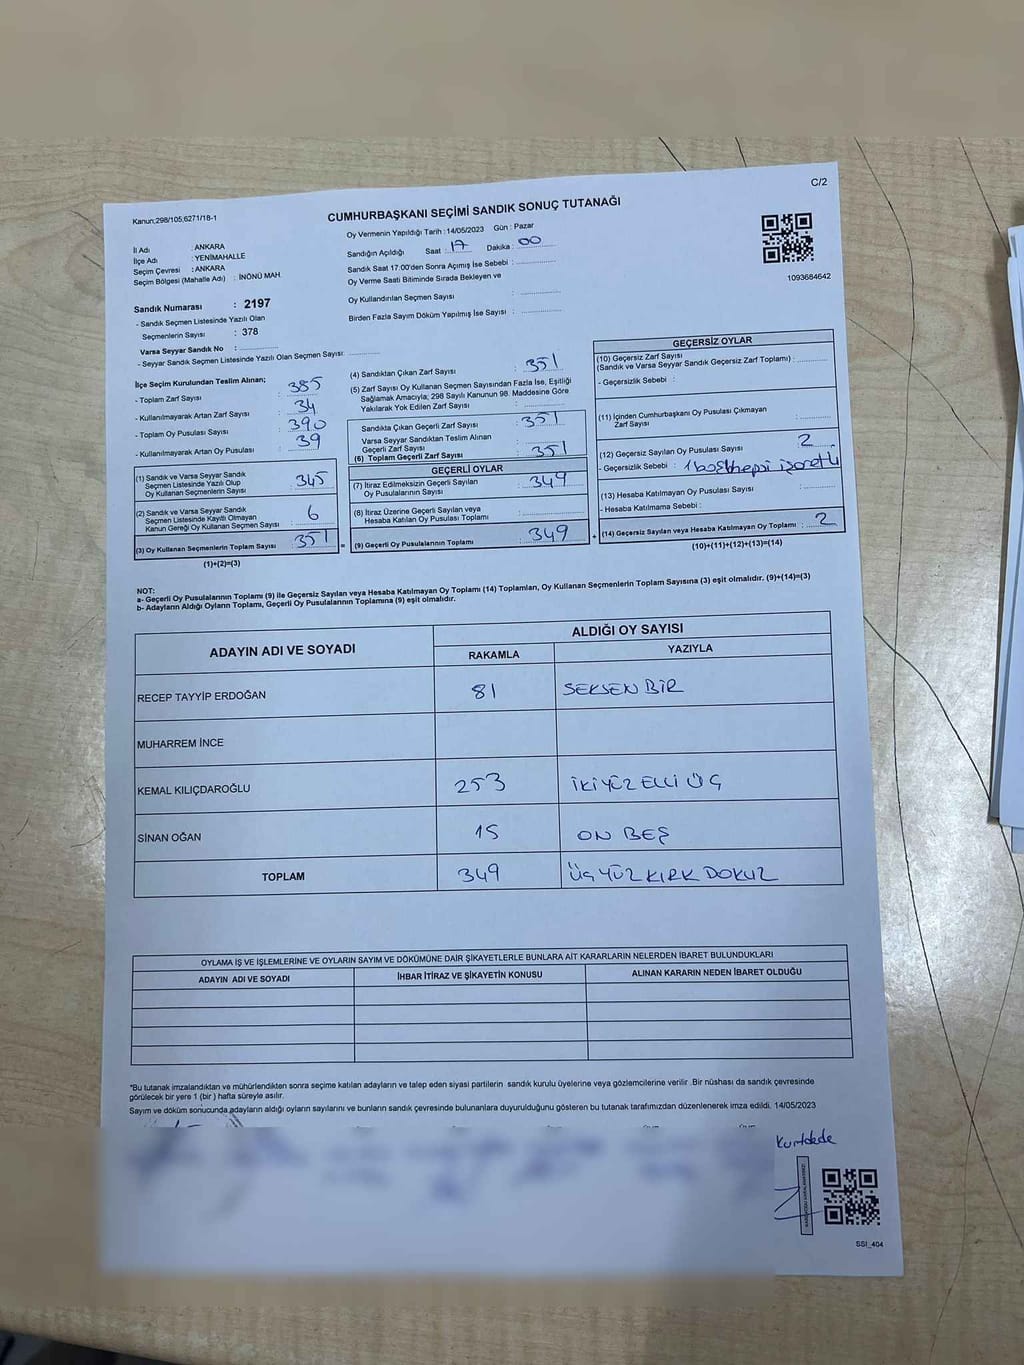 C/2
Kanun;298/105,6271/18-1
CUMHURBAŞKANI SEÇİMİ SANDIK SONUÇ TUTANAĞI
Oy Vermenin Yapıldığı Tarih : 14/05/2023 Gün : Pazar
İl Adı : ANKARA
İlçe Adı : YENİMAHALLE
Seçim Çevresi : ANKARA
Seçim Bölgesi (Mahalle Adı) : İNÖNÜ MAH.
Sandığın Açıldığı Saat : 17 Dakika : 00
Sandık Saat 17:00'den Sonra Açımış İse Sebebi :
Oy Verme Saati Bitiminde Sırada Bekleyen ve
Oy Kullandırılan Seçmen Sayısı :
Birden Fazla Sayım Döküm Yapılmış İse Sayısı :
1093684642
Sandık Numarası : 2197
- Sandık Seçmen Listesinde Yazılı Olan
Seçmenlerin Sayısı : 378
Varsa Seyyar Sandık No :
- Seyyar Sandık Seçmen Listesinde Yazılı Olan Seçmen Sayısı:
İlçe Seçim Kurulundan Teslim Alınan;
- Toplam Zarf Sayısı : 385
- Kullanılmayarak Artan Zarf Sayısı : 34
- Toplam Oy Pusulası Sayısı : 390
- Kullanılmayarak Artan Oy Pusulası : 39
(1) Sandık ve Varsa Seyyar Sandık
Seçmen Listesinde Yazılı Olup
Oy Kullanan Seçmenlerin Sayısı : 345
(2) Sandık ve Varsa Seyyar Sandık
Seçmen Listesinde Kaydı Olmayan
Kanun Gereği Oy Kullanan Seçmen Sayısı : 6
(3) Oy Kullanan Seçmenlerin Toplam Sayısı : 351
(1)+(2)=(3)
(4) Sandıktan Çıkan Zarf Sayısı : 351
(5) Zarf Sayısı Oy Kullanan Seçmen Sayısından Fazla İse, Eşitliği
Sağlamak Amacıyla; 298 Sayılı Kanunun 98. Maddesine Göre
Yakılarak Yok Edilen Zarf Sayısı :
Sandıkta Çıkan Geçerli Zarf Sayısı : 351
Varsa Seyyar Sandıktan Teslim Alınan
Geçerli Zarf Sayısı :
(6) Toplam Geçerli Zarf Sayısı : 351
GEÇERLİ OYLAR
(7) İtiraz Edilmeksizin Geçerli Sayılan
Oy Pusulalarının Sayısı : 349
(8) İtiraz Üzerine Geçerli Sayılan veya
Hesaba Katılan Oy Pusulası Toplamı :
= (9) Geçerli Oy Pusulalarının Toplamı : 349
GEÇERSİZ OYLAR
(10) Geçersiz Zarf Sayısı
(Sandık ve Varsa Seyyar Sandık Geçersiz Zarf Toplamı) :
- Geçersizlik Sebebi :
(11) İçinden Cumhurbaşkanı Oy Pusulası Çıkmayan
Zarf Sayısı :
(12) Geçersiz Sayılan Oy Pusulası Sayısı : 2
- Geçersizlik Sebebi : 1 boş 1 hepsi işaretli
(13) Hesaba Katılmayan Oy Pusulası Sayısı :
- Hesaba Katılmama Sebebi :
+ (14) Geçersiz Sayılan veya Hesaba Katılmayan Oy Toplamı : 2
(10)+(11)+(12)+(13)=(14)
NOT:
a- Geçerli Oy Pusulalarının Toplamı (9) ile Geçersiz Sayılan veya Hesaba Katılmayan Oy Toplamı (14) Toplamları, Oy Kullanan Seçmenlerin Toplam Sayısına (3) eşit olmalıdır. (9)+(14)=(3)
b- Adayların Aldığı Oyların Toplamı, Geçerli Oy Pusulalarının Toplamına (9) eşit olmalıdır.
ADAYIN ADI VE SOYADI ALDIĞI OY SAYISI
RAKAMLA YAZIYLA
RECEP TAYYİP ERDOĞAN 81 SEKSEN BİR
MUHARREM İNCE
KEMAL KILIÇDAROĞLU 253 İKİ YÜZ ELLİ ÜÇ
SİNAN OĞAN 15 ON BEŞ
TOPLAM 349 ÜÇ YÜZ KIRK DOKUZ
OYLAMA İŞ VE İŞLEMLERİNE VE OYLARIN SAYIM VE DÖKÜMÜNE DAİR ŞİKAYETLERLE BUNLARA AİT KARARLARIN NELERDEN İBARET BULUNDUKLARI
ADAYIN ADI VE SOYADI İHBAR İTİRAZ VE ŞİKAYETİN KONUSU ALINAN KARARIN NEDEN İBARET OLDUĞU
*Bu tutanak imzalandıktan ve mühürlendikten sonra seçime katılan adayların ve talep eden siyasi partilerin sandık kurulu üyelerine veya gözlemcilerine verilir .Bir nüshası da sandık çevresinde
görülecek bir yere 1 (bir ) hafta süreyle asılır.
Sayım ve döküm sonucunda adayların aldığı oyların sayılarını ve bunların sandık çevresinde bulunanlara duyurulduğunu gösteren bu tutanak tarafımızdan düzenlenerek imza edildi. 14/05/2023
Kurtdede
SSI_404